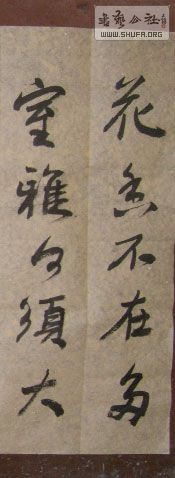 書藝公社
WWW.SHUFA.ORG
花香不在多
室雅何須大